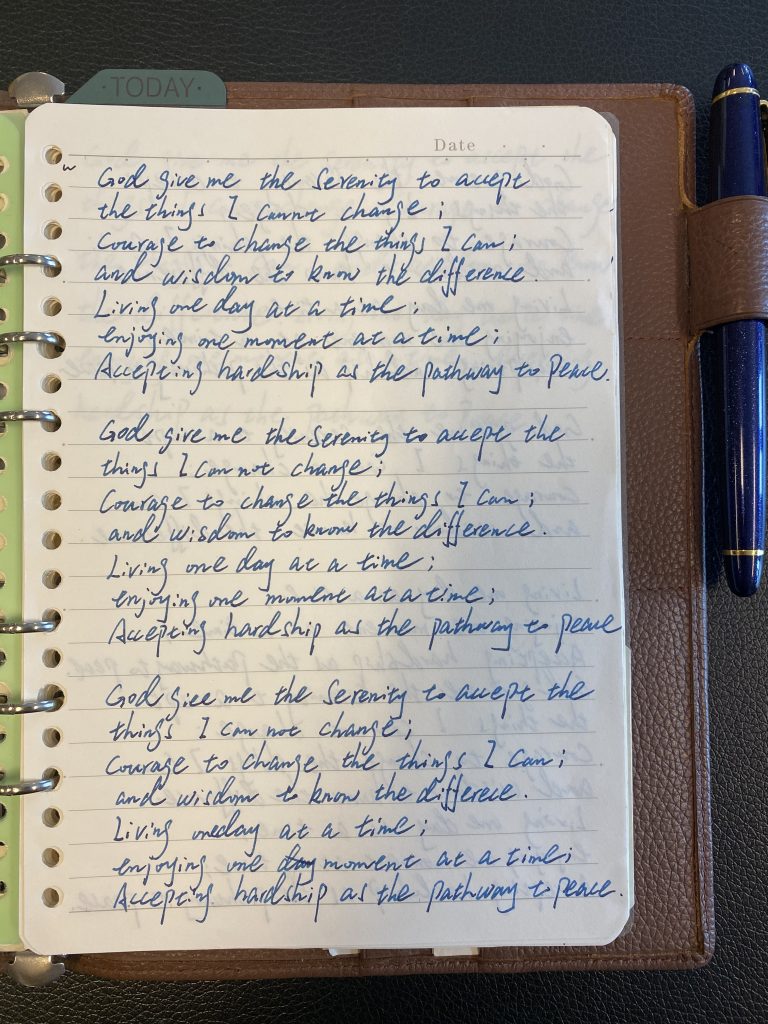 ·TODAY·
Date
God give me the serenity to accept
the things I cannot change;
Courage to change the things I can;
and wisdom to know the difference.
Living one day at a time;
enjoying one moment at a time;
Accepting hardship as the pathway to peace.
God give me the serenity to accept the
things I can not change;
Courage to change the things I can;
and wisdom to know the difference.
Living one day at a time;
enjoying one moment at a time;
Accepting hardship as the pathway to peace
God giee me the serenity to accept the
things I can not change;
Courage to change the things I can;
and wisdom to know the differece.
Living oneday at a time;
enjoying one day moment at a time;
Accepting hardship as the pathway to peace.